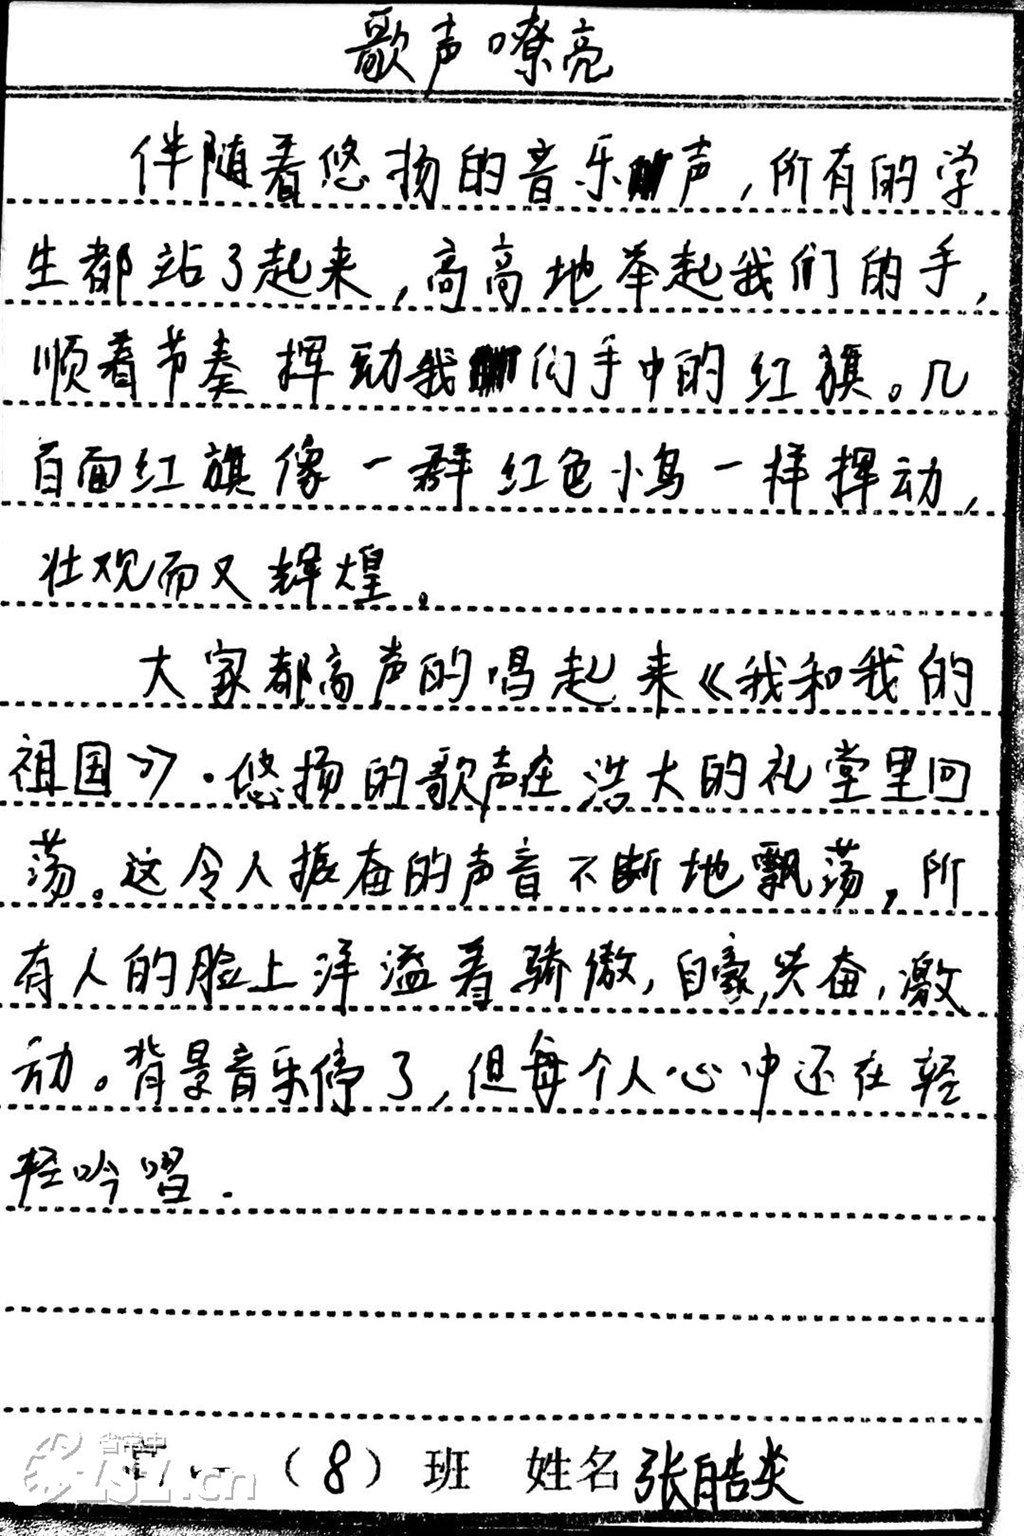 歌声嘹亮
伴随着悠扬的音乐声,所有的学
生都站了起来,高高地举起我们的手,
顺着节奏挥动我们手中的红旗。几
百面红旗像一群红色小鸟一样挥动,
壮观而又辉煌。
大家都高声的唱起来《我和我的
祖国》.悠扬的歌声在浩大的礼堂里回
荡。这令人振奋的声音不断地飘荡,所
有人的脸上洋溢着骄傲,自豪,兴奋,激
动。背景音乐停了,但每个人心中还在轻
轻吟唱.
(8)班 姓名 张皓炎